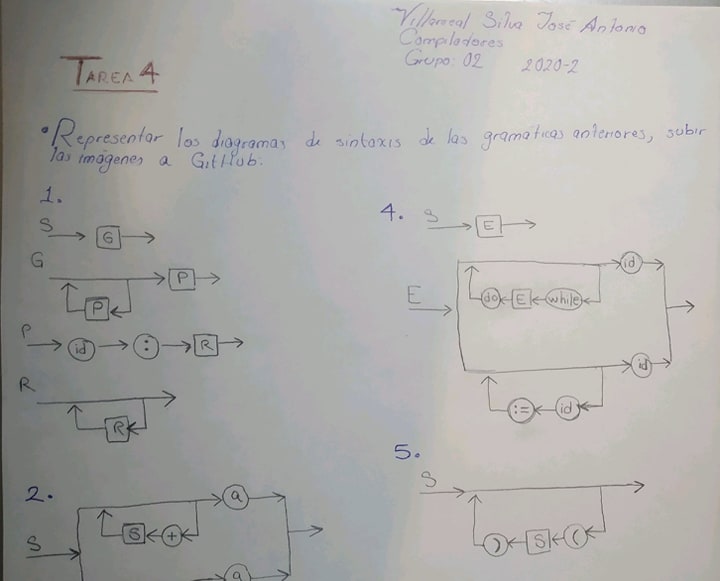 Villarreal Silva José Antonio
Compiladores
Grupo: 02 2020-2
TAREA 4
• Representar los diagramas de sintaxis de las gramáticas anteriores, subir
las imágenes a GitHub.
1.
S G
G P
P
P id : R
R
R
2.
S a
S +
a
4. S E
E id
do E while
id
:= id
5.
S
) S (